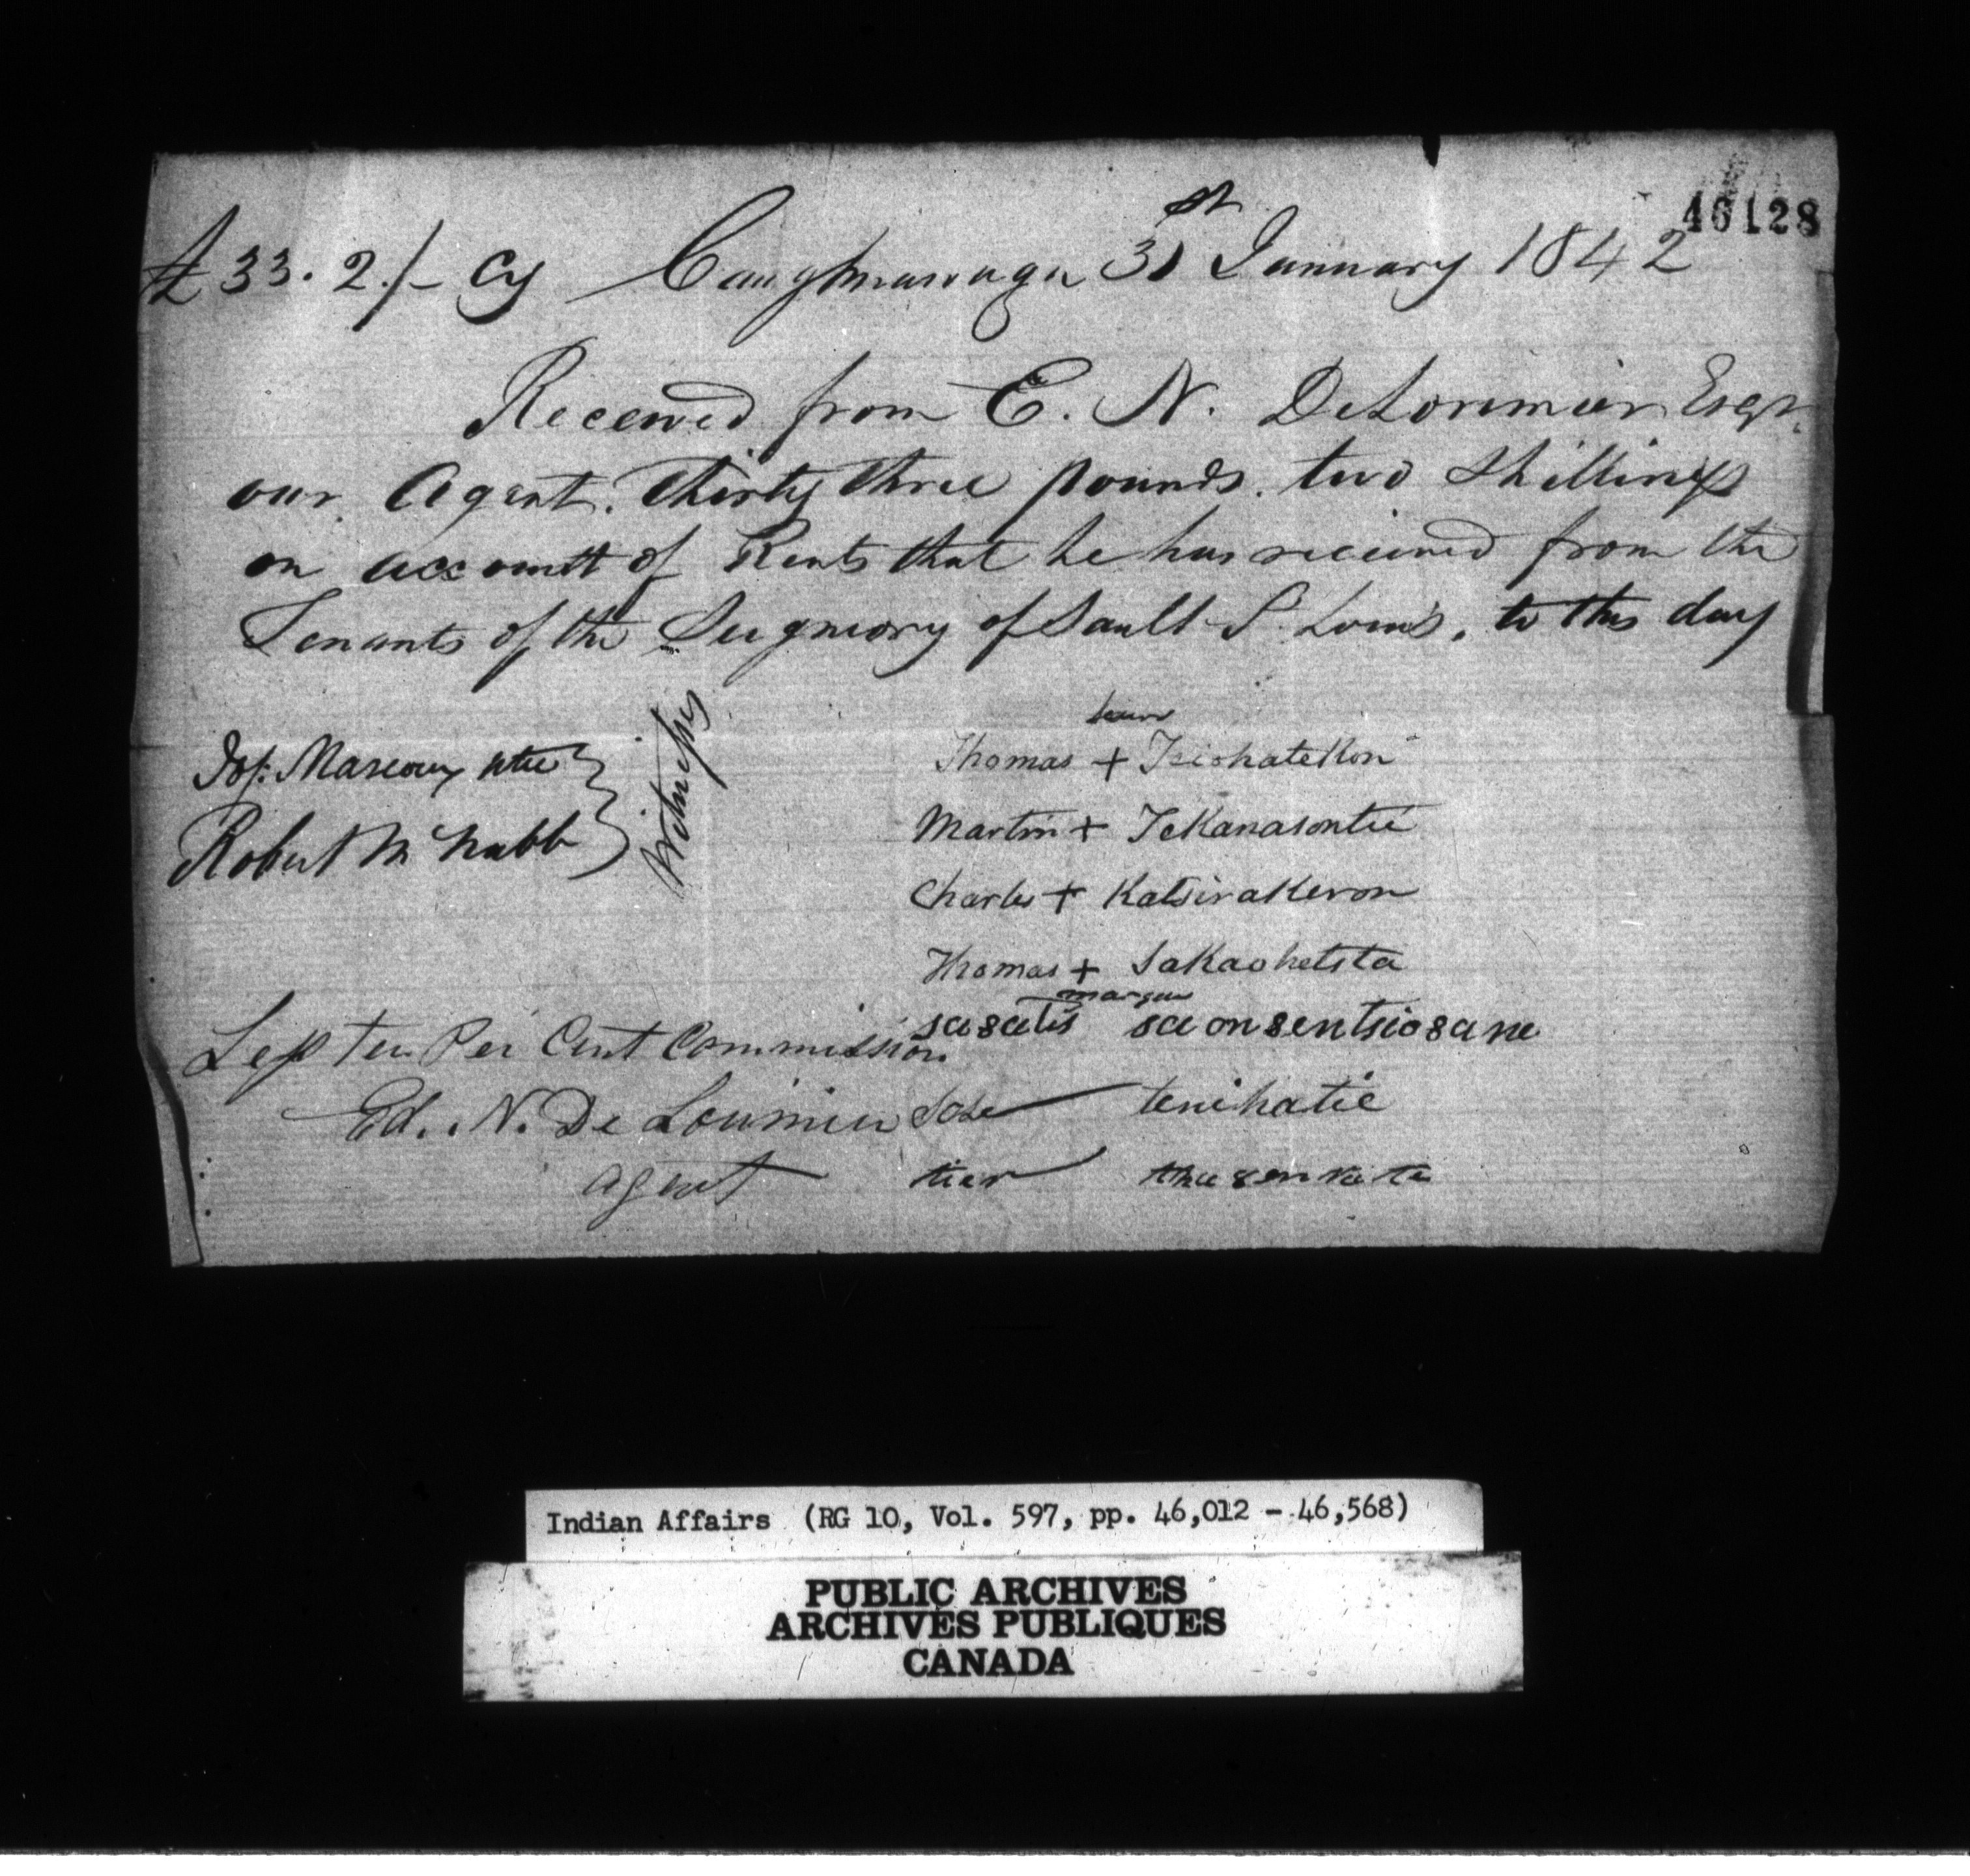 46128
£33.2./- Cy Caughnawaga 31st January 1842
Received from E. N. DeLorimier Esqr.
our Agent. Thirty three pounds. two Shillings
on account of Rents that he has received from the
Tenants of the Seigniory of Sault S. Louis, to this day
their
Thomas + Tsiohatekon
Martin + Tekanasontie
Charles + Katsirakeron
Thomas + Sakaohetsta
marque
Jos. Marcoux ptre
Robert McNabb
Witnesses
sasatis saonsentsiosane
Less ten Per Cent Commission
Ed. N. De Lorimier
agent
Sose tenihatie
tier thasenkate
Indian Affairs (RG 10, Vol. 597, pp. 46,012 - 46,568)
PUBLIC ARCHIVES
ARCHIVES PUBLIQUES
CANADA